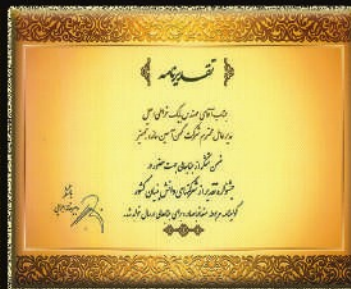 تقدیرنامه
جناب آقای مهندس بابک
مدیرعامل محترم شرکت کهن آسین سازه تجهیز
ضمن تشکر از جنابعالی جهت حضور در
جشنواره تقدیر از شرکتهای دانش بنیان کشور
گواهینامه مربوطه متعاقبا صادره برای جنابعالی ارسال خواهد شد.